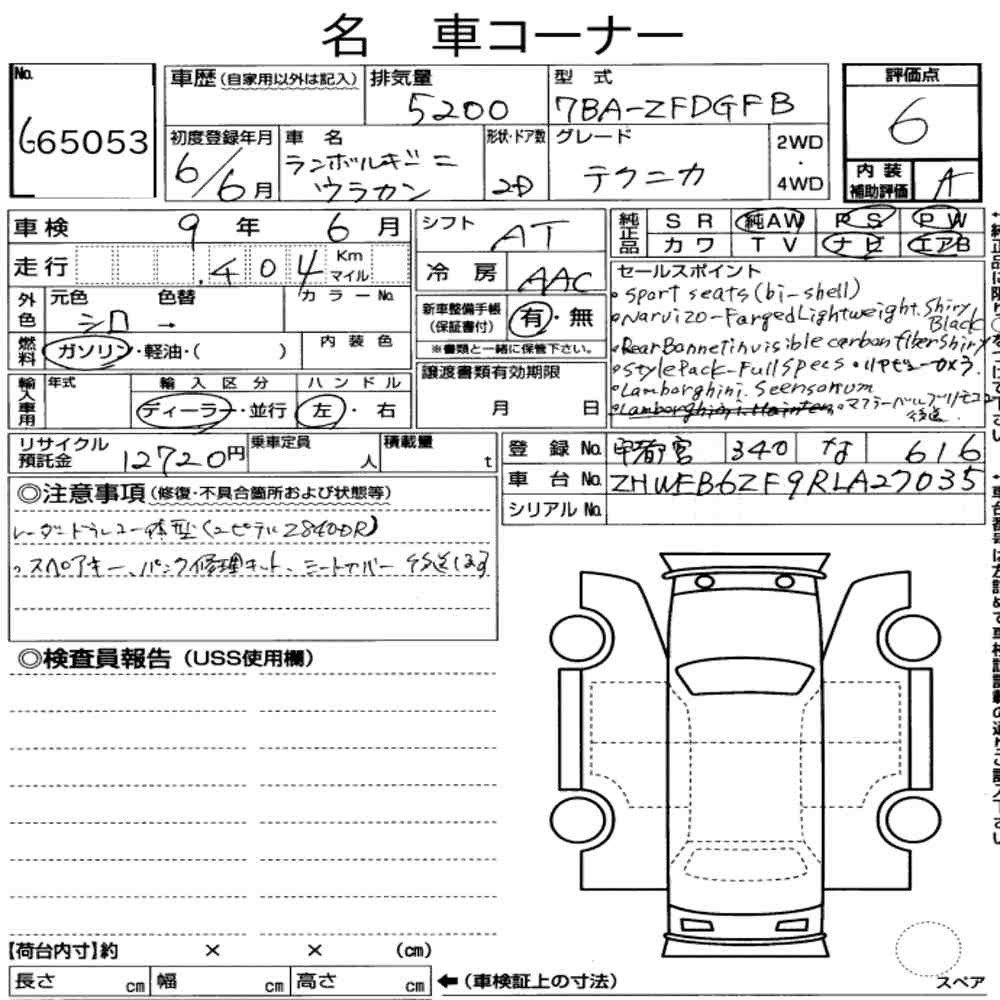 名 車コーナー
No.
65053
車歴(自家用以外は記入)
排気量
5200
型 式
7BA-ZFDGFB
評価点
6
初度登録年月
6/6月
車 名
ランボルギーニ
ウラカン
形状・ドア数
2D
グレード
テクニカ
2WD
・
4WD
内 装
補助評価
A
車検 9 年 6 月
走行 404 Km
マイル
シフト
AT
冷 房
AAC
純正品
SR 純AW PS PW
カワ TV ナビ エアB
外色
元色 色替
シロ →
カラーNo.
燃料
ガソリン・軽油・( )
内 装 色
新車整備手帳
(保証書付)
有・無
※書類と一緒に保管下さい。
セールスポイント
・Sport seats(bi-shell)
・Narvizo-Farged Lightweight. Shiny
Black
・Rear Bonnet invisible carbon fiber Shiny
・Style Pack-Full Specs ・リヤビューカメラ.
・Lamborghini. Seensorum
・マフラーバルブリモコン
後送
輸入車用
年式
輸 入 区 分
ディーラー・並行
ハ ン ド ル
左・右
譲渡書類有効期限
月 日
リサイクル
預託金
12720円
乗車定員
人
積載量
t
登 録 No.
340 な 616
車 台 No.
ZHWEB6ZF9RLA27035
シリアル No.
◎注意事項(修復・不具合箇所および状態等)
レーダードラレコ一体型(ユピテルZ840DR)
。スペアキー、パンク修理キット、シートカバー 後送します
◎検査員報告(USS使用欄)
【荷台内寸】約 × × (cm)
長さ cm 幅 cm 高さ cm
←(車検証上の寸法)
スペア